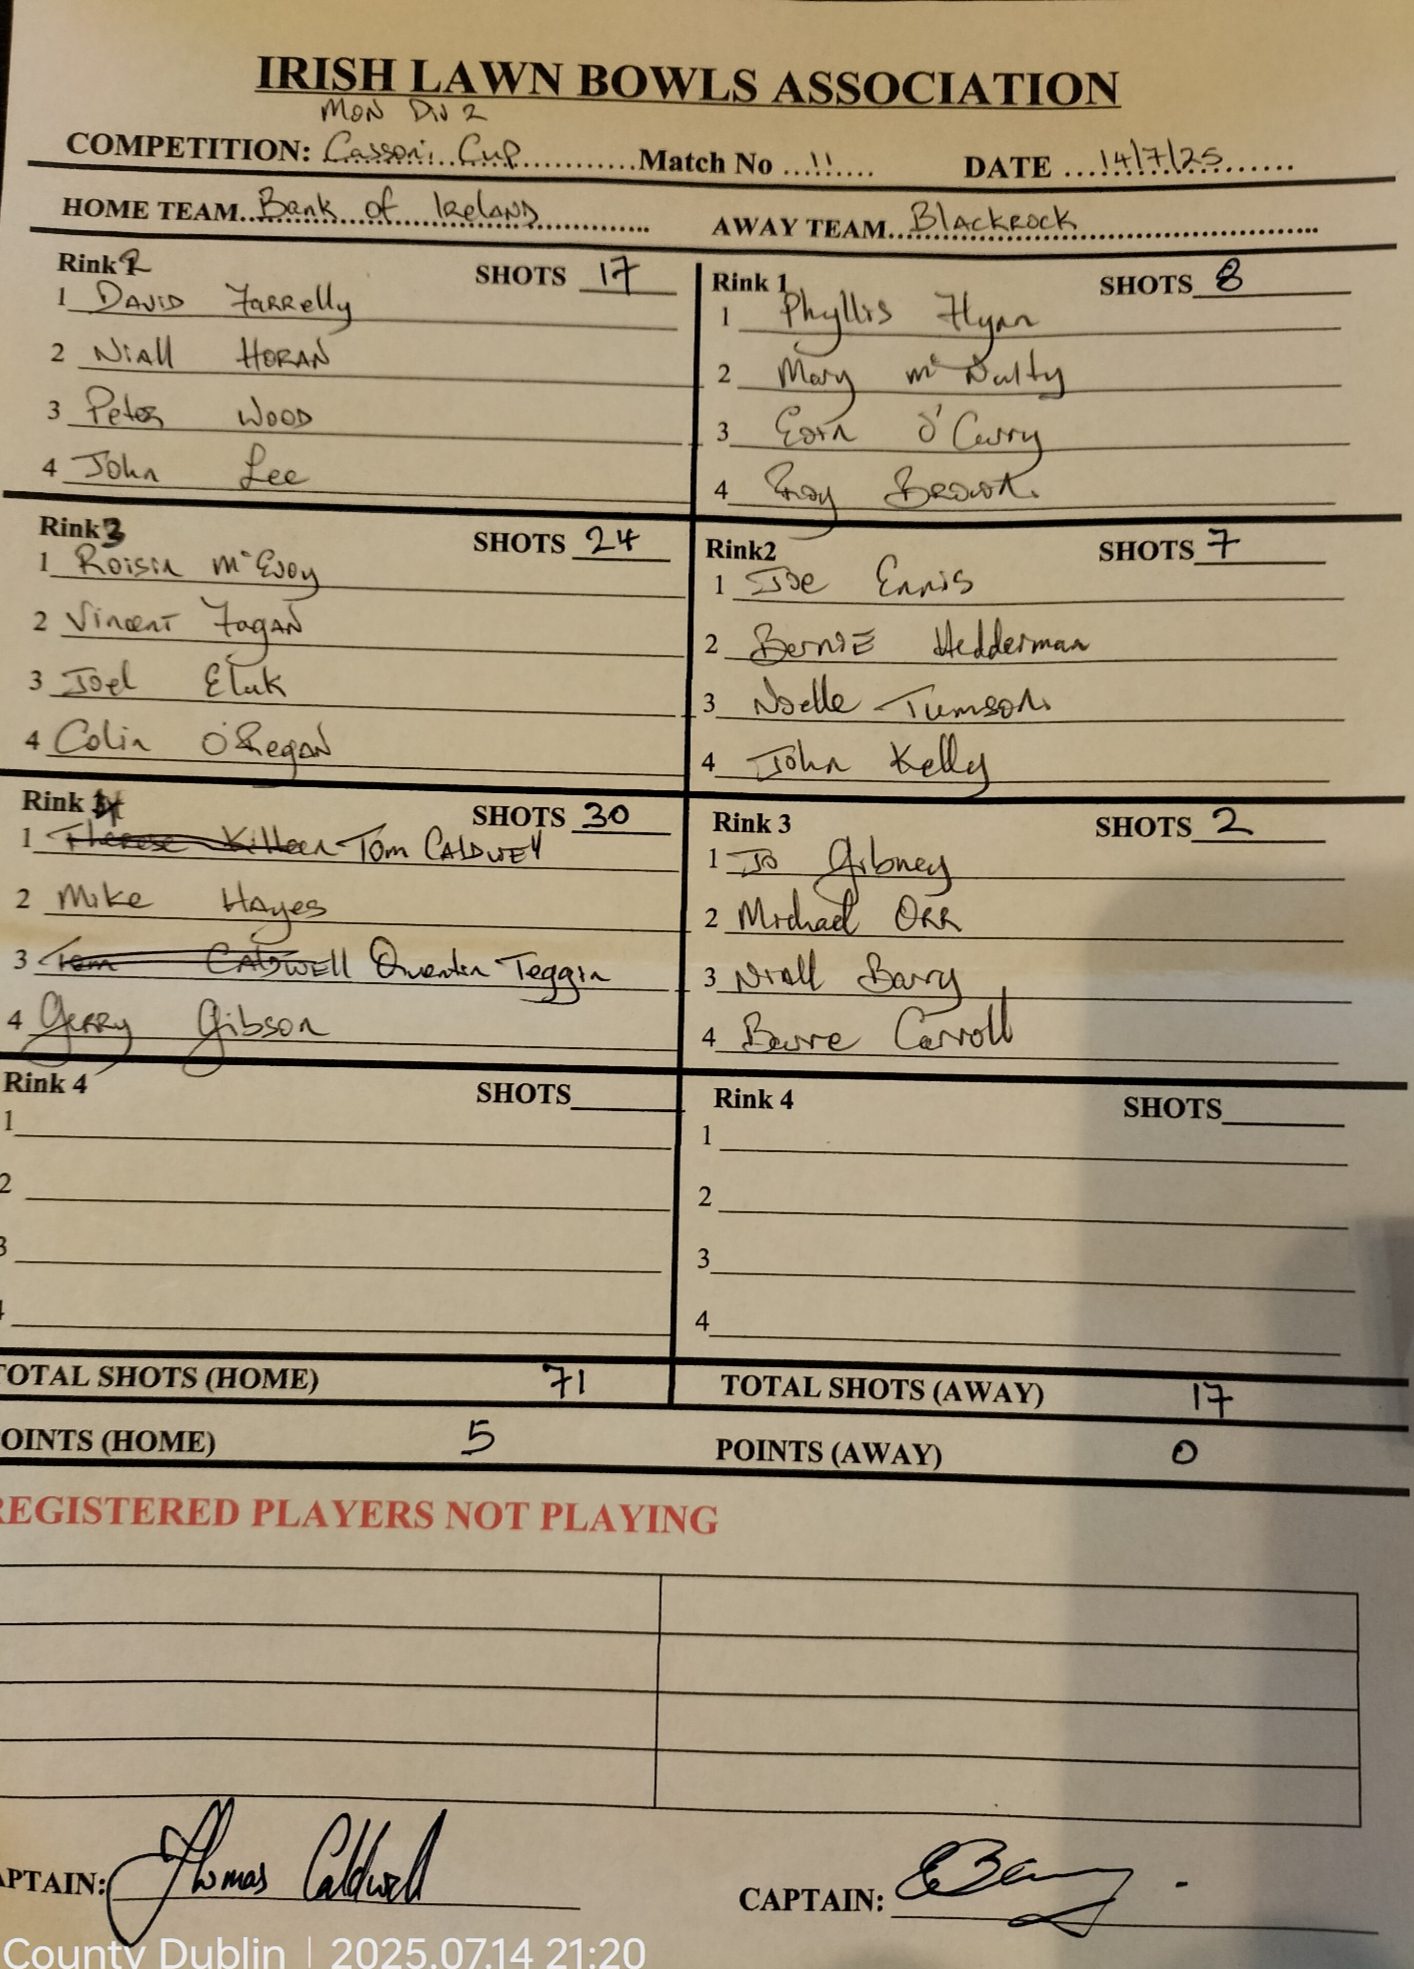 IRISH LAWN BOWLS ASSOCIATION
MON DIV 2
COMPETITION: Casson Cup Match No 11 DATE 14/7/25
HOME TEAM Bank of IRELAND AWAY TEAM Blackrock
Rink 2 SHOTS 17
1 DAVID FARRElly
2 Niall HORAN
3 Peter WOOD
4 John Lee
Rink 1 SHOTS 8
1 Phyllis Flynn
2 Mary McNulty
3 Eoin O'Curry
4 Brown
Rink 3 SHOTS 24
1 Roisin McEvoy
2 Vincent FagAN
3 Joel Eluk
4 Colin O'RegAN
Rink2 SHOTS 7
1 Joe Ennis
2 BerniE Hedderman
3 Noelle
4 John Kelly
Rink 4 SHOTS 30
1 Therese Killeen Tom CALDWELL
2 Mike HAyes
3 Tom CALDWELL Quentin Teggin
4 Gerry Gibson
Rink 3 SHOTS 2
1 Jo Gibney
2 Michael ORR
3 Niall Barry
4 Carroll
Rink 4 SHOTS
1
2
3
Rink 4 SHOTS
1
2
3
4
TOTAL SHOTS (HOME) 71 TOTAL SHOTS (AWAY) 17
POINTS (HOME) 5 POINTS (AWAY) 0
REGISTERED PLAYERS NOT PLAYING
CAPTAIN: Thomas Caldwell CAPTAIN:
County Dublin | 2025.07.14 21:20